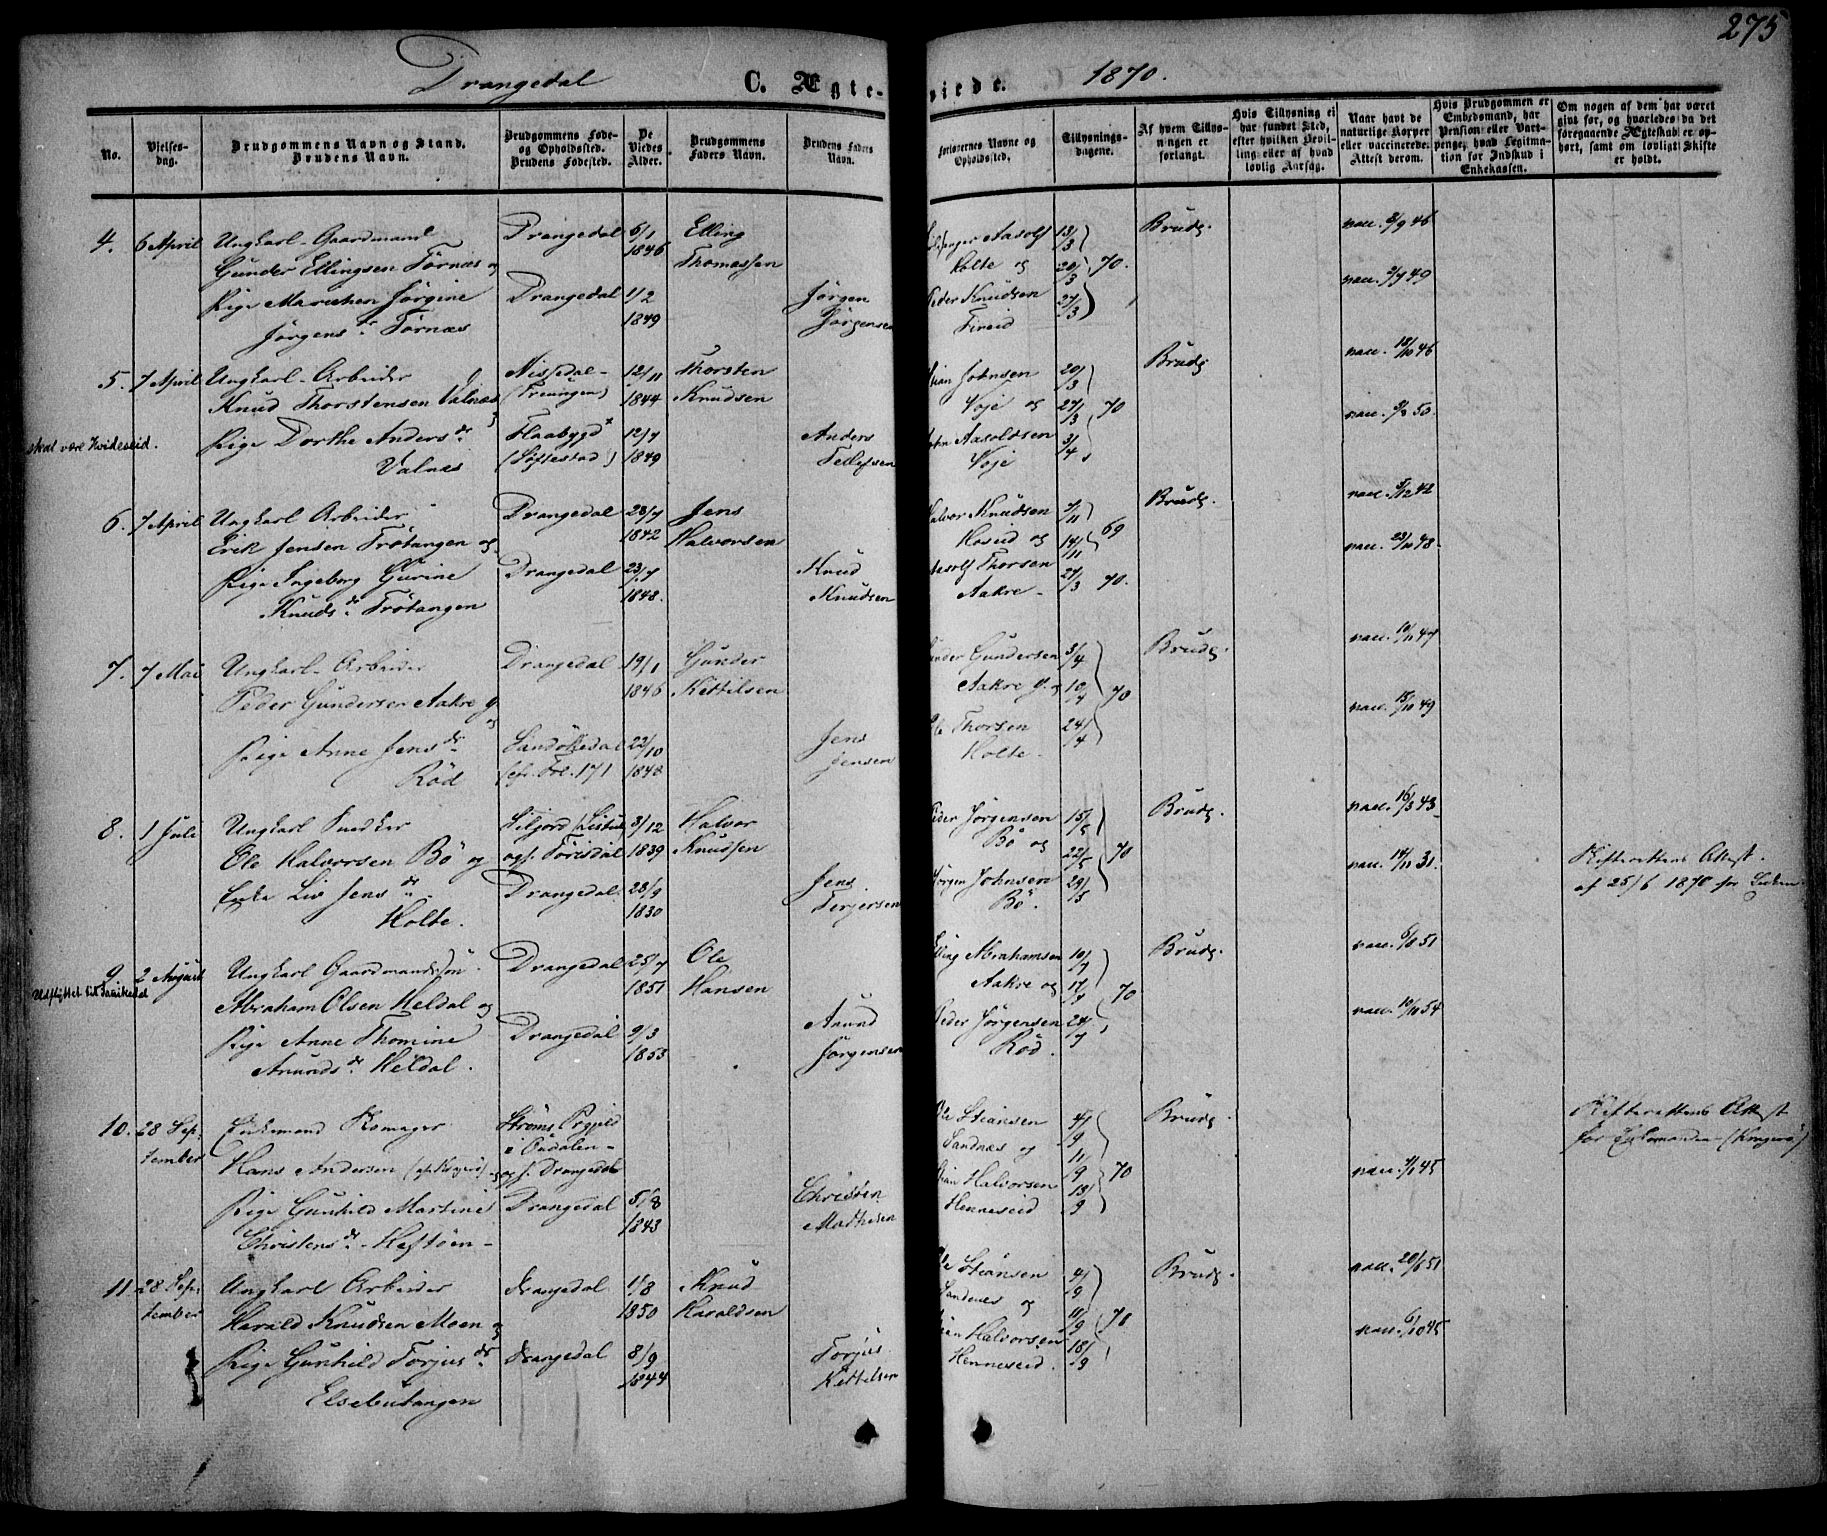 275
Drangedal C. Ægte- viede. 1870.
No.
Vielses-
dag.
Brudgommens Navn og Stand.
Brudens Navn.
Brudgommens Føde-
og Opholdssted.
Brudens Fødested.
De
Viedes
Alder.
Brudgommens
Faders Navn.
Brudens Faders
Navn.
Forlovernes Navne og
Opholdssted.
Tillysnings-
dagene.
Af hvem Tillys-
ningen er
forlangt.
Hvis Tillysning ei
har fundet Sted,
efter hvilken Bevil-
ling eller af hvad
lovlig Aarsag.
Naar havt de
naturlige Kopper
eller vaccinerede.
Attest derom.
Hvis Brudgommen er
Embedsmand, har
Pension eller Vart-
penge, hvad Legitima-
tion for Indskud i
Enkekassen.
Om nogen af dem har været
gift før, og hvorledes da det
foregaaende Ægteskab er op-
hørt, samt om lovligt Skifte
er holdt.
4. 6 April Ungkarl Gaardmand Drangedal 6/1 Elling
Gunder Ellingsen Törnæs og 1846 Thomassen
Pige Marichen Jörgine Drangedal 1/2 Jörgen
Jörgensdr. Törnæs 1849 Jörgensen
Aasolf 13/3 Brudg. vacc. 8/9 46
Holte og 20/3 70.
Peder Knudsen 27/3 vacc. 2/9 49
5. 7 April Ungkarl Arbeider Nissedal 12/11 Thorsten
Knud Thorstensen Valnæs (Treungen) 1844 Knudsen
skal være Kvideseid.
Pige Dorthe Andersdr. Flaabygd 12/7 Anders
Valnæs (Söftestad) 1849 Tellefsen
Johnsen 20/3 Brudg. vacc. 18/10 46
Voje og 27/3 70
Aasoldsen 3/4 vacc. 50
Voje
6. 7 April Ungkarl Arbeider Drangedal 28/7 Jens
Erik Jensen Trötangen og 1842 Halvorsen
Pige Ingeborg Gurine Drangedal 23/7 Knud
Knudsdr. Trötangen 1848. Knudsen
Halvor Knudsen 7/11 Brudg. vacc. 42
Hoseid og 14/11 69
Aasolf Thorsen 27/3 70. vacc. 23/10 48
Aakre
7. 7 Mai Ungkarl Arbeider Drangedal 19/1 Gunder
Peder Gundersen Aakre og 1846 Kittilsen
Pige Anne Jensdr. Sandökedal 22/10 Jens
Röd Fol. 171 1848 Jensen
Gunder Gundersen 3/4 Brudg. vacc. 10/11 47
Aakre og 10/4 70
Ole Thorsen 24/4 vacc. 15/10 49
Holte
8. 1 Juli Ungkarl Snedker 3/12 Halvor
Ole Halvorsen Bö og Törisdal 1839 Knudsen
Enke Liv Jensdr. Drangedal 28/9 Jens
Holte. 1830 Terjersen
Peder Jörgensen 15/5 Brudg. vacc. 16/3 43
Bö og 22/5 70
Jörgen Johnsen 29/5 vacc. 14/11 31.
Bö.
Skifterettens Attest
af 25/6 1870 for Enken
9. 2 August Ungkarl Gaardmandssön Drangedal 25/7 Ole
Udflyttet til
Abraham Olsen Heldal og 1851 Hansen
Pige Anne Thomine Drangedal 9/3 Anund
Anundsdr. Heldal. 1853 Jörgensen
Abrahamsen 10/7 Brudg. vacc. 6/8 51
Aakre og 17/7 70
Peder Jörgensen 24/7 vacc. 10/11 54
Röd.
10. 28 Sep-
tember Enkemand Ströms Prgjeld
i Oudalen
Hans Andersen og f. Drangedal
Pige Gunhild Martine Drangedal 5/8 Christen
Christensdr. Heftöen 1843 Mathesen
Ole Steansen 4/9 Brudg.
Sandnæs og 11/9
Halvorsen 18/9 70 vacc. 45
Henneseid
Skifterettens Attest
for Enkemanden (Kragerö)
11. 28 Sep-
tember Ungkarl Arbeider Drangedal 1/8 Knud
Harald Knudsen Moen og 1850 Haraldsen
Pige Gunhild Torjusdr. Drangedal 8/9 Torjus
Elsebutangen 1844 Kittelsen
Ole Steansen 4/9 Brudg. vacc. 20/6 51
Sandnæs og 11/9 70
Halvorsen 18/9 vacc. 6/10 45
Henneseid.